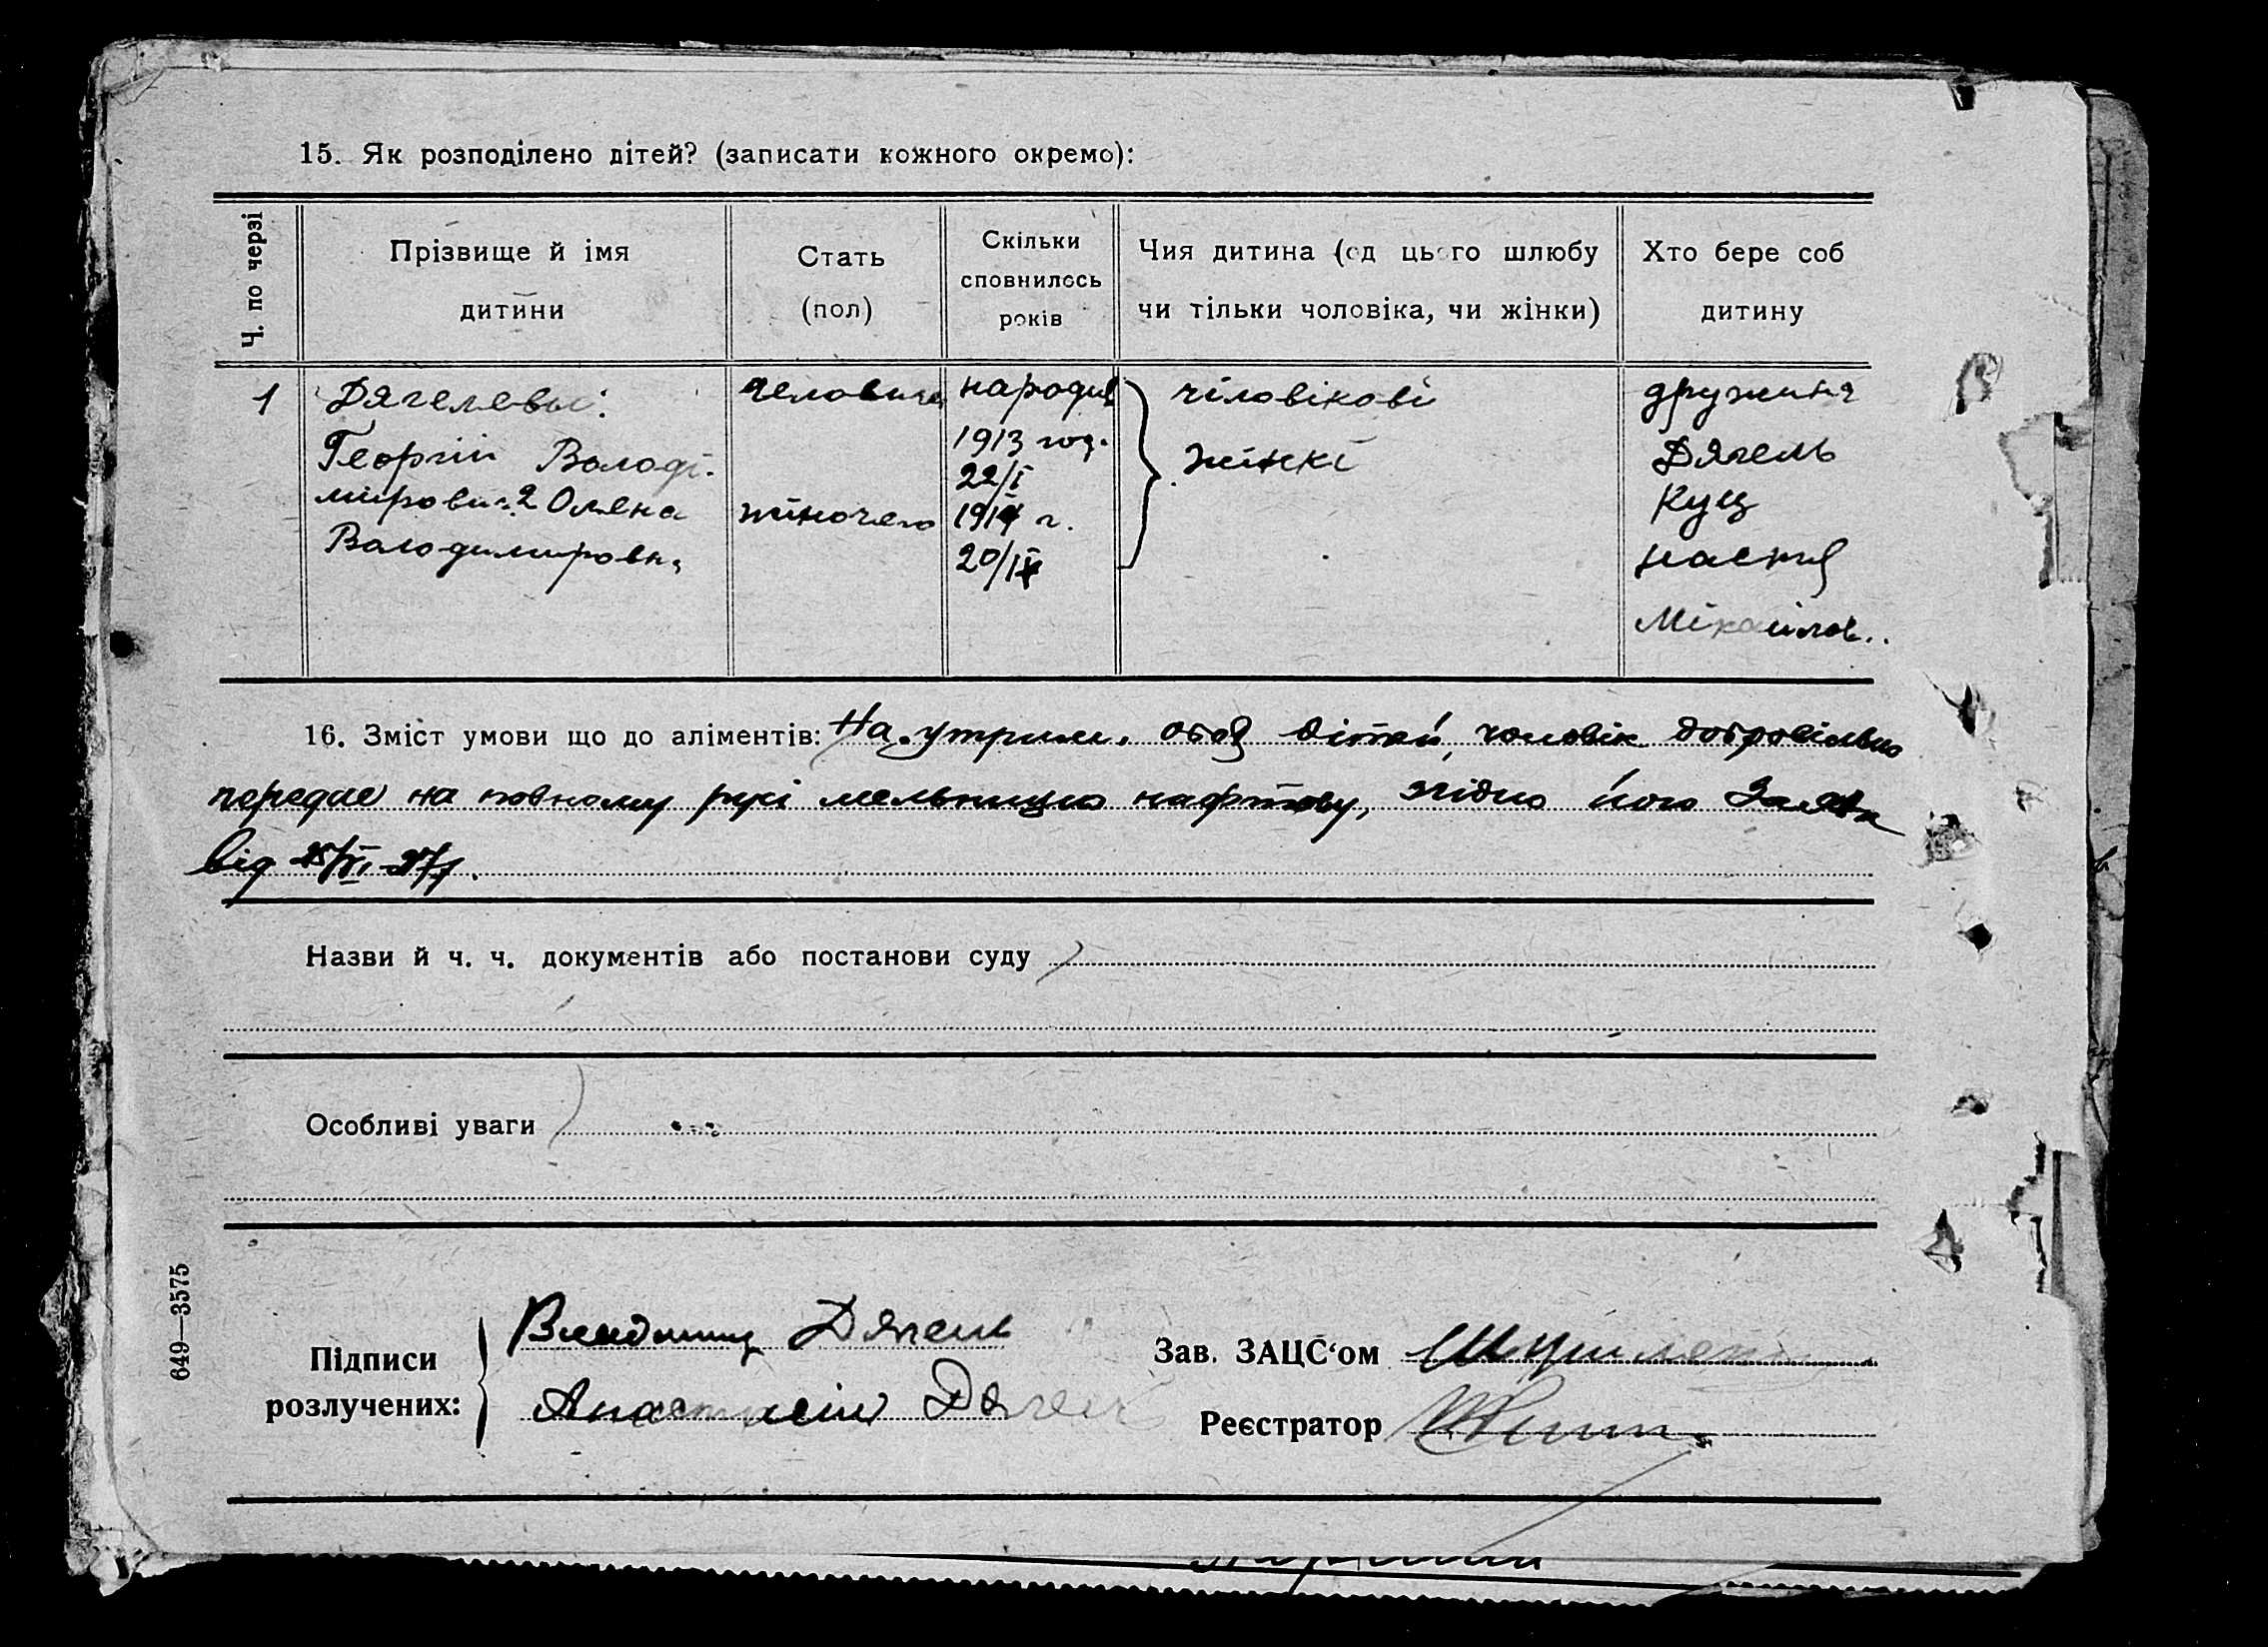 15. Як розподілено дітей? (записати кожного окремо):
Ч. по черзі
Прізвище й імя
дитини
Стать
(пол)
Скільки
сповнилось
років
Чия дитина (од цього шлюбу
чи тільки чоловіка, чи жінки)
Хто бере соб
дитину
1
Дягелевы:
Георгий Володі-
мирович 2 Олена
Володимировна
человіче
жіночего
народив
1913 год.
22/I
1914 г.
20/IV
чіловікові
жінкі
дружина
Дягель
Куц
настя
Міхайлов..
16. Зміст умови що до аліментів: На утрим. обоя дітей, чоловік добровільно
передає на повному русі мельницю нафтову, згідно його Заяви
від 25/VI
Назви й ч. ч. документів або постанови суду
Особливі уваги
649—3575
Підписи
розлучених:
Владимир Дягель
Анастасия Дягель
Зав. ЗАЦС'ом
Реєстратор